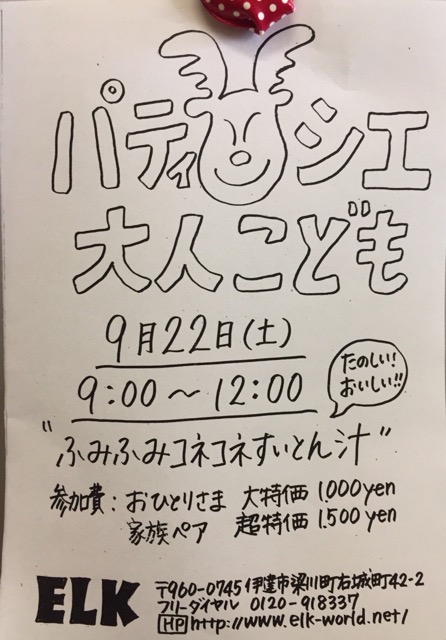 パティシエ
大人こども
9月22日(土)
9:00～12:00
たのしい!
おいしい!!
"ふみふみコネコネすいとん汁"
参加費:おひとりさま 大特価 1.000yen
家族ペア 超特価 1.500yen
ELK
〒960-0745 伊達市梁川町右城町42-2
フリーダイヤル 0120-918337
HP http://www.elk-world.net/